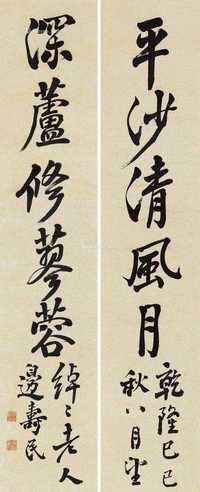 平沙清風月
乾隆己巳
秋八月望
深蘆修蓼蓉
綽綽老人
邊壽民